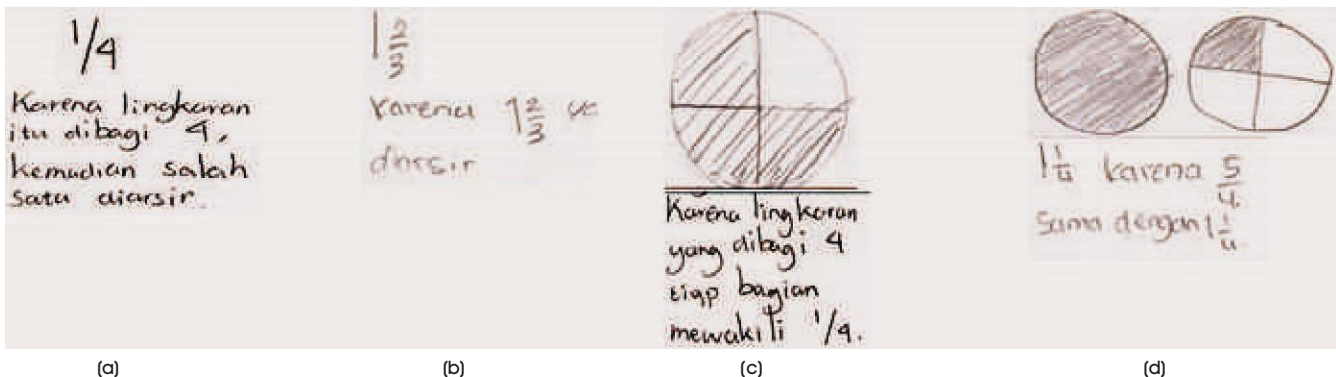 1/4
Karena lingkaran
itu dibagi 4,
kemudian salah
satu diarsir.
(a)
1 2/3
Karena 1 2/3
diarsir
(b)
Karena lingkaran
yang dibagi 4
tiap bagian
mewakili 1/4.
(c)
1 1/4 karena 5/4
sama dengan 1 1/4
(d)